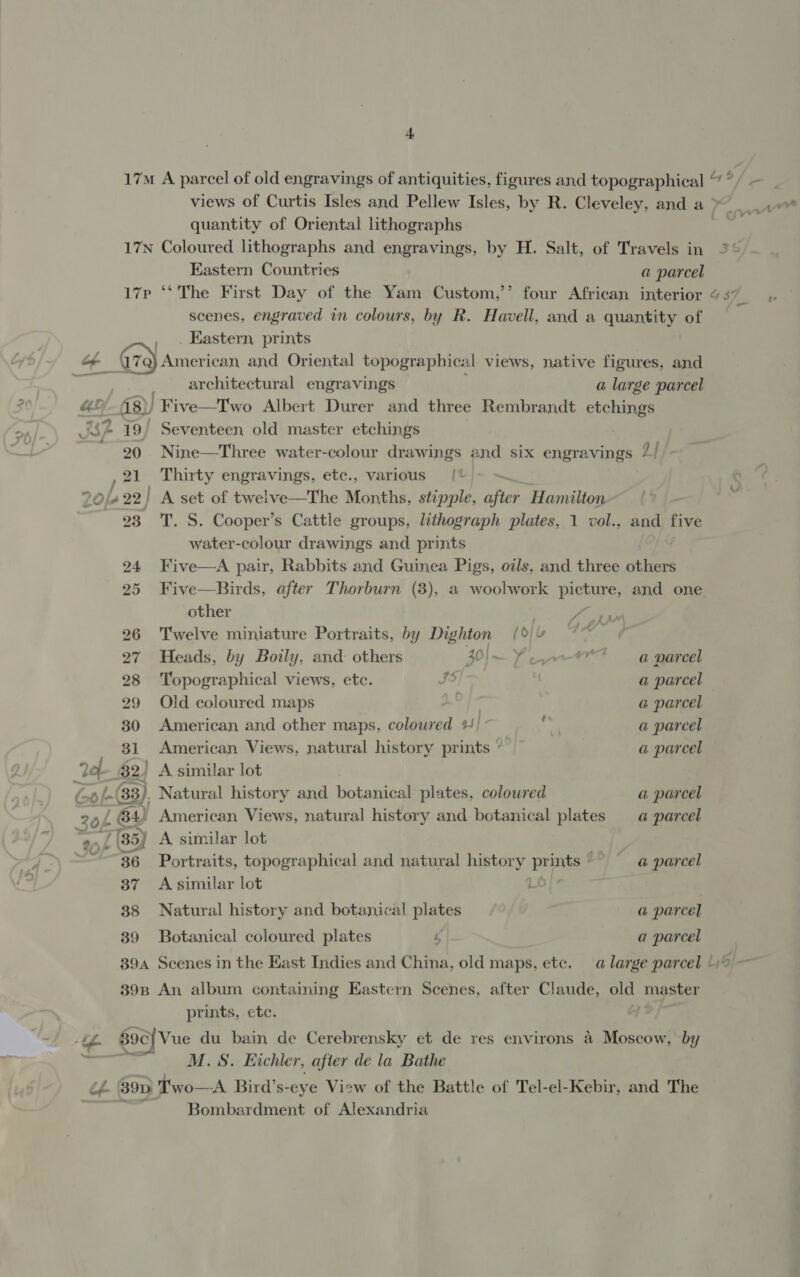 4
17M A parcel of old engravings of antiquities, figures and topographical
views of Curtis Isles and Pellew Isles, by R. Cleveley, and a
quantity of Oriental lithographs
17N Coloured lithographs and engravings, by H. Salt, of Travels in
Eastern Countries a parcel
17P “The First Day of the Yam Custom,” four African interior
scenes, engraved in colours, by R. Havell, and a quantity of
Eastern prints
17Q American and Oriental topographical views, native figures, and
architectural engravings a large parcel
18 Five—Two Albert Durer and three Rembrandt etchings
19 Seventeen old master etchings
20 Nine—Three water-colour drawings and six engravings
21 Thirty engravings, etc., various
22 A set of twelve—The Months, stipple, after Hamilton
23 T. S. Cooper's Cattle groups, lithograph plates, 1 vol., and five
water-colour drawings and prints
24 Five—A pair, Rabbits and Guinea Pigs, oils, and three others
25 Five—Birds, after Thorburn (3), a woolwork picture, and one
other
26 Twelve miniature Portraits, by Dighton
27 Heads, by Boily, and others 30/- a parcel
28 Topographical views, etc. a parcel
29 Old coloured maps a parcel
30 American and other maps, coloured a parcel
31 American Views, natural history prints a parcel
32 A similar lot
33 Natural history and botanical plates, coloured a parcel
34 American Views, natural history and botanical plates a parcel
35 A similar lot
36 Portraits, topographical and natural history prints a parcel
37 A similar lot
38 Natural history and botanical plates a parcel
39 Botanical coloured plates a parcel
39A Scenes in the East Indies and China, old maps, etc. a large parcel
39B An album containing Eastern Scenes, after Claude, old master
prints, etc.
39C Vue du bain de Cerebrensky et de res environs à Moscow, by
M. S. Eichler, after de la Bathe
39D Two—A Bird's-eye View of the Battle of Tel-el-Kebir, and The
Bombardment of Alexandria